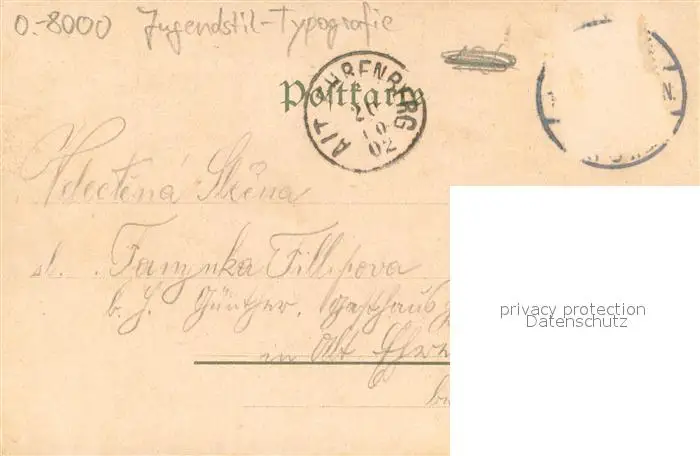 0-8000 Jugendstil-Typografie
Postkarte
ALT EHRENBERG
20
10
02
N.
Velectěná Slečna
sl. Fanynka Fillipova
b. H. Günther, Gasthaus
in Alt Ehren
privacy protection
Datenschutz